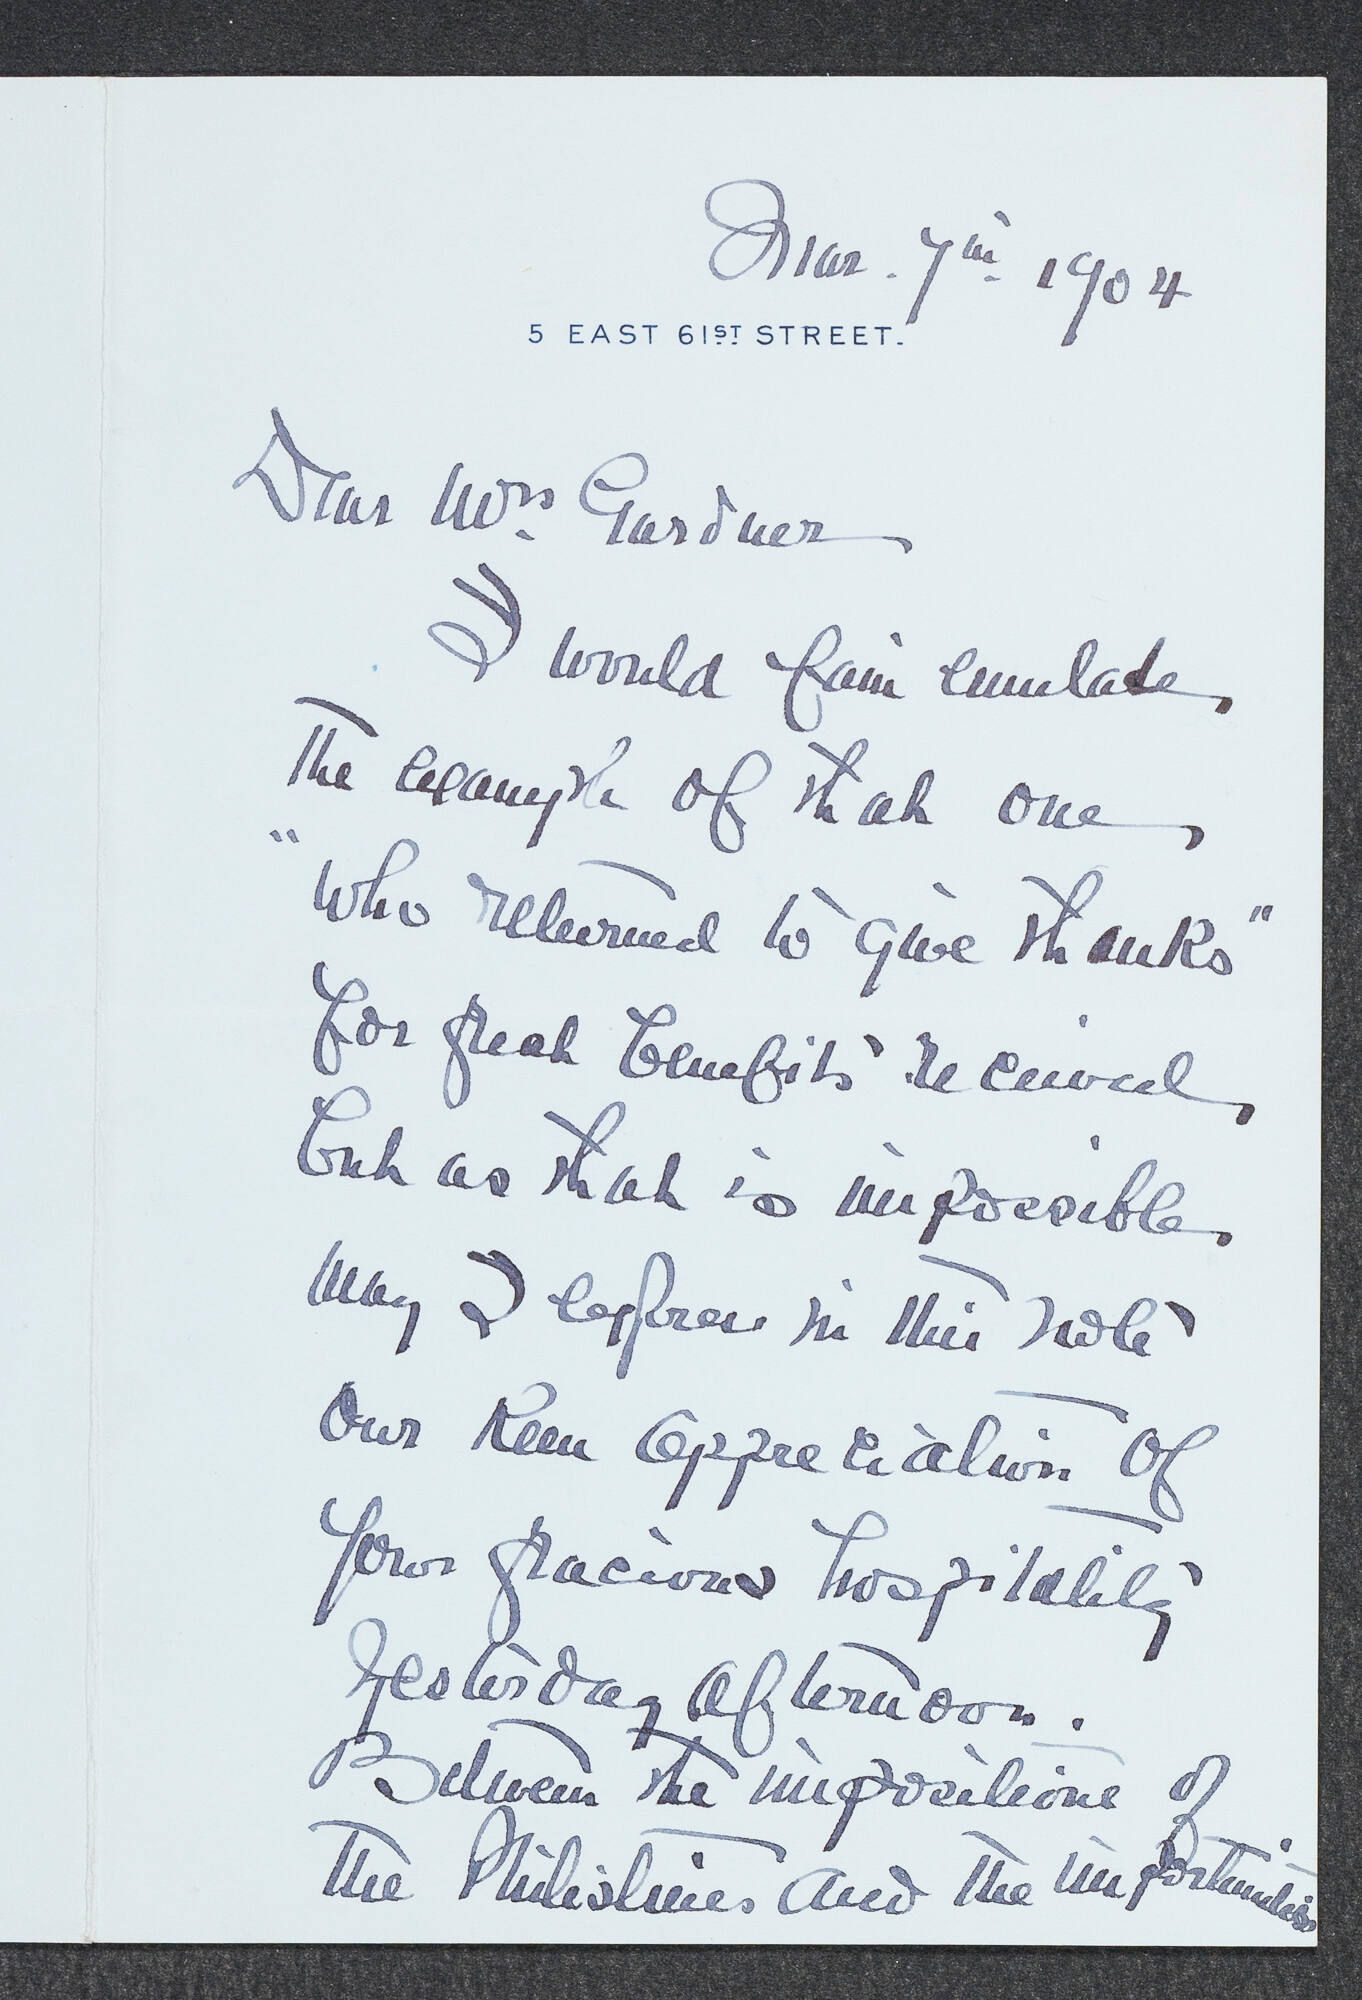 Mar. 7th 1904
5 EAST 61ST STREET.
Dear Mrs Gardner
I would fain emulate
the example of that one
"who returned to give thanks"
for great benefits received
but as that is impossible
may I express in this note
our keen appreciation of
your gracious hospitality
yesterday afternoon.
Between the impositions of
the Philistines and the importunities